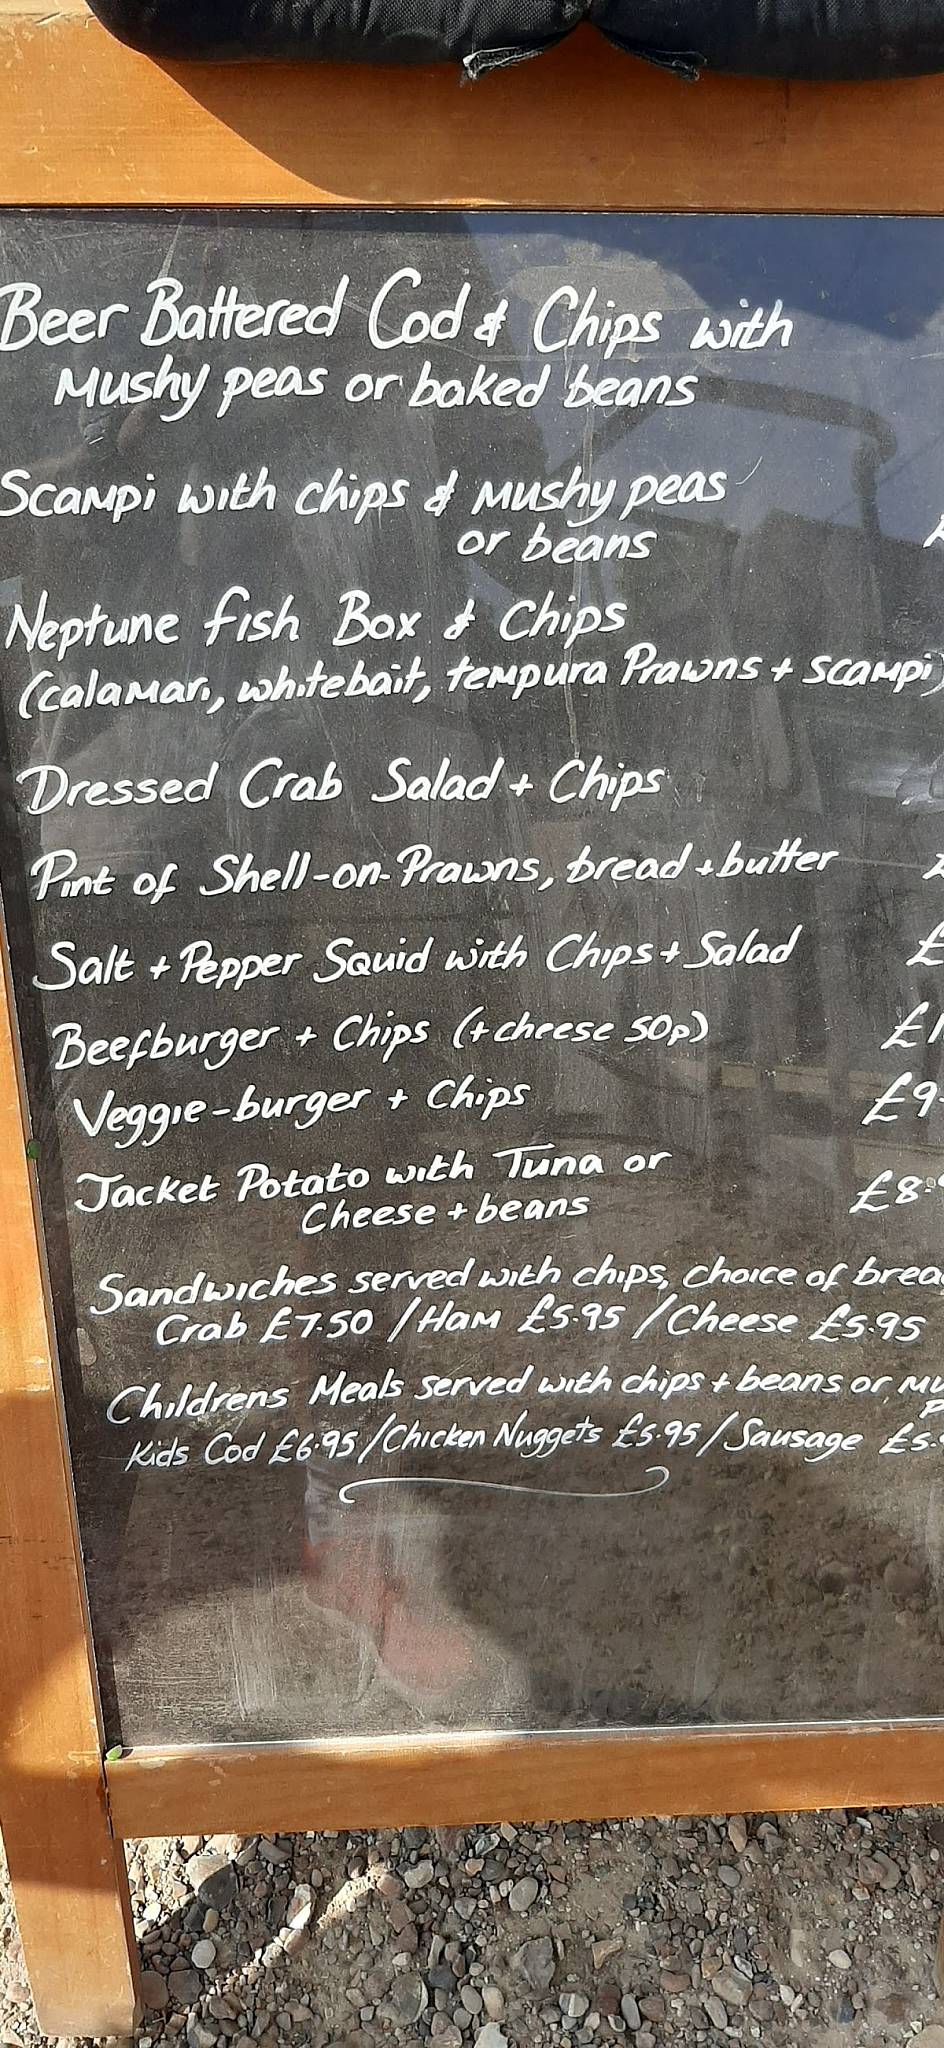 Beer Battered Cod & Chips with
Mushy peas or baked beans
Scampi with chips & Mushy peas
or beans
Neptune fish Box & Chips
(calamari, whitebait, tempura Prawns + scampi)
Dressed Crab Salad + Chips
Pint of Shell-on-Prawns, bread + butter
Salt + Pepper Squid with Chips + Salad £
Beefburger + Chips (+ cheese 50p) £1
Veggie-burger + Chips £9.
Jacket Potato with Tuna or
Cheese + beans £8.9
Sandwiches served with chips, choice of brea
Crab £7.50 / Ham £5.95 / Cheese £5.95
Childrens Meals served with chips + beans or mu
Kids Cod £6.95 / Chicken Nuggets £5.95 / Sausage £5.9